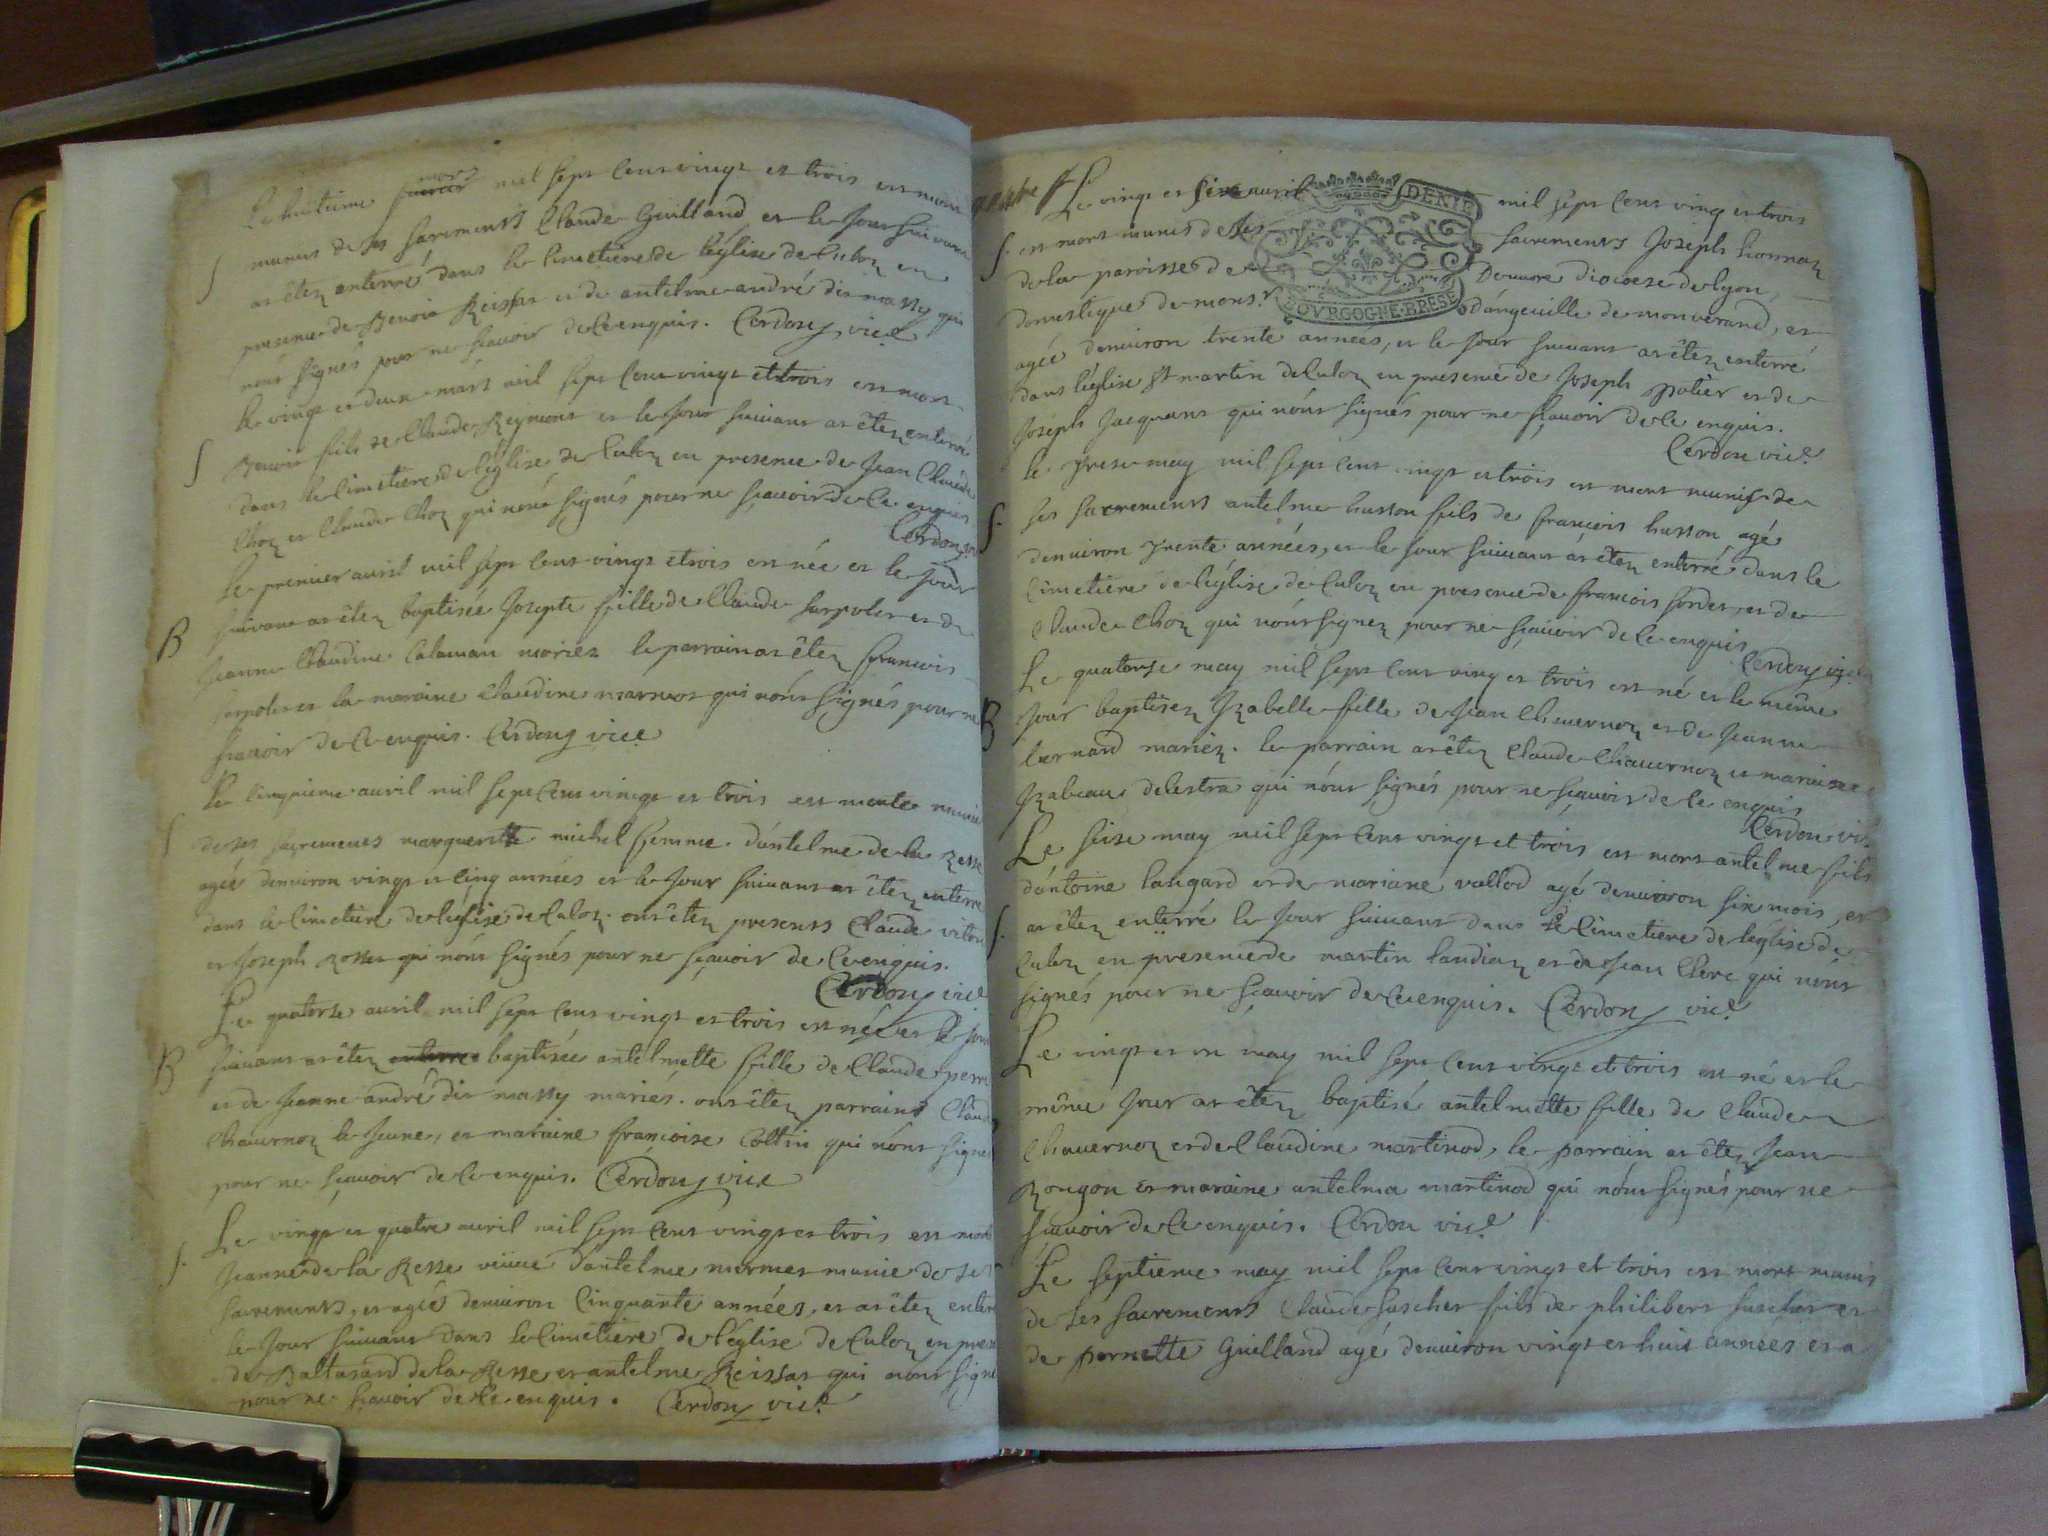 Le huitieme fevrier mars mil sept cens vingt et trois est mort
munis de ses sacrements Claude Guilland et le jour suivant
S
at êtez enterré dans le cimetiere de l'église de Culoz en
presence de Benoit Reissat et de antelme andré dit massy qui
n'ont signés pour ne sçavoir de ce enquis. Cerdon vice
le vingt et deux mars mil sept cens vingt et trois est mort
Benoit fils de Claude Reymont et le jour suivant at êtez enterré
S
dans le cimetiere de l'église de Culoz en presence de Jean Claude
Choz et Claude Choz qui n'ont signés pour ne sçavoir de ce enquis
Cerdon
Le premier avril mil sept cens vingt et trois est née et le jour
suivant at êtez baptisée Josepte fille de Claude Serpolet et de
B
Jeanne Claudine Calaman mariez le parrain at êtez francois
serpolet et la maraine Claudine marmet qui n'ont signés pour ne
sçavoir de ce enquis. Cerdon vice
Le cinquieme avril mil sept cens vingt et trois est morte munie
S
de ses sacrements margueritte michel femme d'antelme de la Resse
agée denviron vingt et cinq années et le jour suivant at êtez enterré
dans le cimetiere de l'église de Culoz. ont êtez presents Claude
et Joseph Rosset qui n'ont signés pour ne sçavoir de ce enquis.
Cerdon vice
Le quatorse avril mil sept cens vingt et trois est née et le jour
B
suivant at êtez enterré baptisée antelmette fille de Claude
et de Jeanne andré dit massy mariés. ont êtez parrains Claude
Chavernoz le jeune, et maraine francoise Cottin qui n'ont signés
pour ne sçavoir de ce enquis. Cerdon vice
Le vingt et quatre avril mil sept cens vingt et trois est morte
S.
Jeanne de la Resse veuve d'antelme mermet munie de ses
sacrements, et agée denviron cinquante années, et at êtez enterré
le jour suivant dans le cimetiere de l'église de Culoz en presence
de Baltasard de la Resse et antelme Reissat qui n'ont signé
pour ne sçavoir de ce enquis. Cerdon vice
Le vingt et six avril mil sept cens vingt et trois
DENIE
BOVRGOGNE BRESE
S. est mort munis de ses sacrements Joseph
de la paroisse de diocese de lyon,
domestique de monsr Dangeville de monverand, et
agée denviron trente années, et le jour suivant at êtez enterré
dans l'église St martin de Culoz en presence de Joseph Patier et de
Joseph Jacquans qui n'ont signés pour ne sçavoir de ce enquis.
Cerdon vice
le trese may mil sept cens vingt et trois est mort munis de
S.
ses sacrements antelme husson fils de francois husson agé
denviron trente années, et le jour suivant at êtez enterré dans le
cimetiere de l'église de Culoz en presence de francois sordet, et de
Claude Choz qui n'ont signez pour ne sçavoir de ce enquis
Cerdon vice
Le quatorse may mil sept cens ving et trois est né et le même
B
jour baptisez Izabelle fille de Jean Chavernoz et de Jeanne
bernard mariez. le parrain at êtez Claude Chavernoz et maraine
Izabeau delestra qui n'ont signés pour ne sçavoir de ce enquis
Cerdon vic.
Le seise may mil sept cens vingt et trois est mort antelme fils
d'antoine laugard et de mariane vallod agé denviron six mois, et
S.
at êtez enterré le jour suivant dans le cimetiere de l'église de
Culoz en presence de martin landiaz et de Jean Clerc qui n'ont
signés pour ne sçavoir de ce enquis. Cerdon vice
Le vingt et un may mil sept cens vingt et trois est né et le
même jour at êtez baptisé antelmette fille de Claude
Chavernoz et de Claudine martinod, le parrain at êtez Jean
Rougon et maraine antelma martinod qui n'ont signés pour ne
sçavoir de ce enquis. Cerdon vice
Le septieme may mil sept cens vingt et trois est mort munis
de ses sacrements Claude Suscher fils de philibert suscher et
de pernette Guilland agé denviron vingt et huit années et a